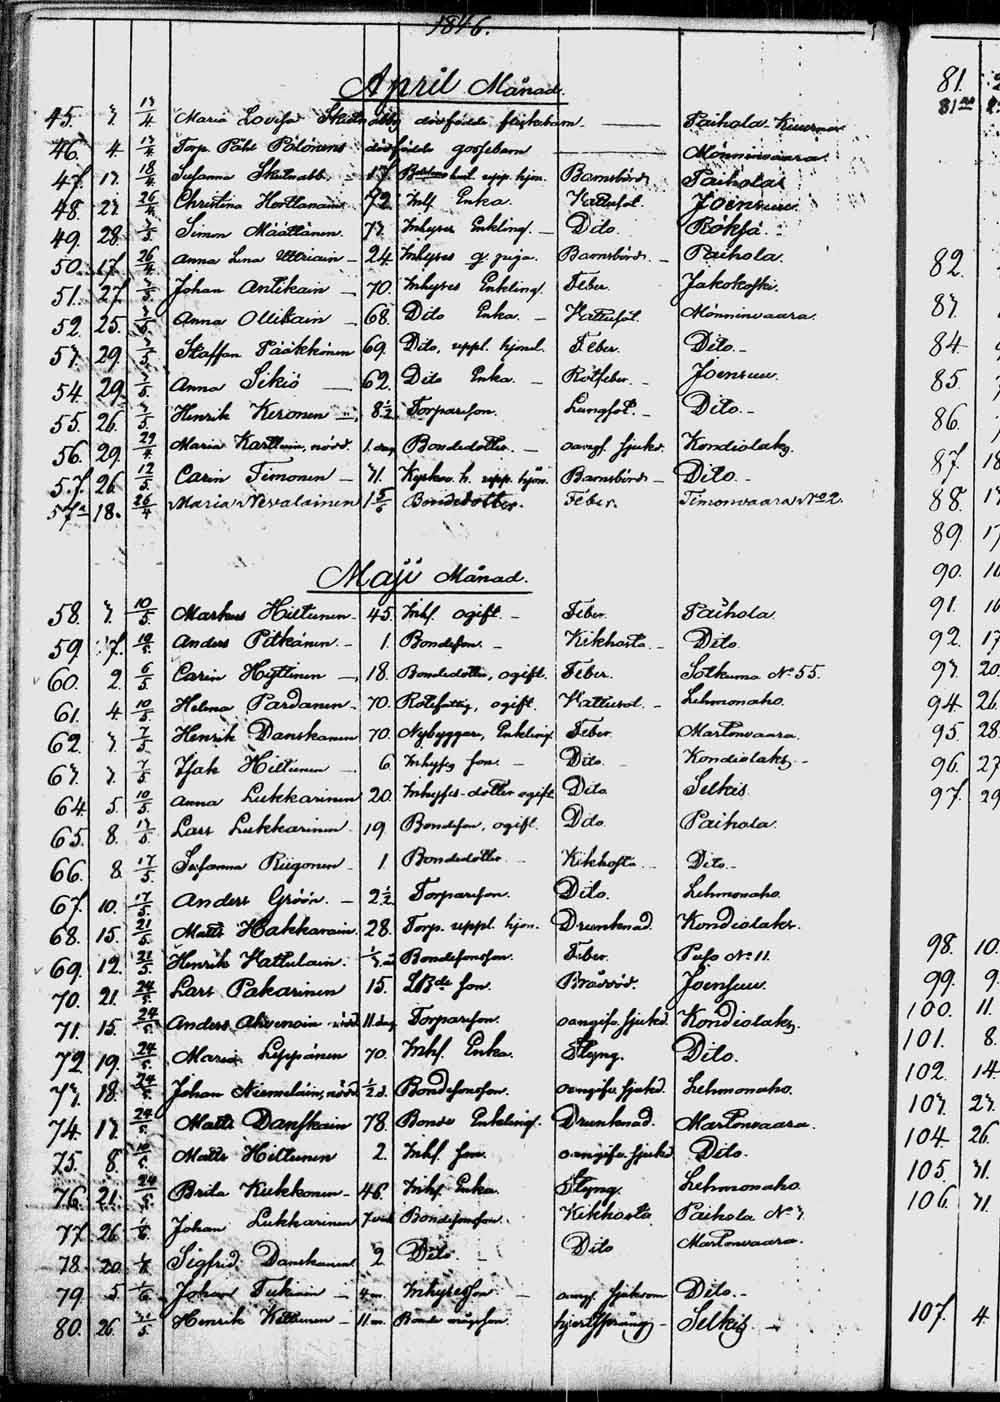 1846.
April Månad.
45. 3. 13/4 Maria Lovisa dödfödde flickebarn Paihola
46. 4. 13/4 Torp. Påhl Pölönens dödfödde gossebarn Mönninvaara
47. 13. 18/4 Susanna 17. upp. hjon. Barnsbörd Paihola
48. 23. 26/4 Christina 72. Inh. Enka. Hållsot. Joensuu.
49. 28. 3/5 Simon Määttänen. 73. Inhyses Enkling. Dito. Röksä
50. 17. 26/4 Anna Lena 24. Inhyses g. piga. Barnsbörd. Paihola.
51. 27. 3/5 Johan Antikain 70. Inhyses Enkling. Feber. Jakokoski.
52. 25. 3/5 Anna Ollikain 68. Dito Enka. Hållsot. Mönninvaara.
53. 29. 3/5 Staffan Pääkkönen 69. Dito, uppl. hjonel. Feber. Dito.
54. 29. 3/5 Anna Sikiö 62. Dito Enka. Rötfeber. Joensuu.
55. 26. 3/5 Henrik Keronen 8 1/2 Torpareson. Lungsot. Dito.
56. 29. 29/4 Maria nöd. 1. dag Bondedotter. oangf. sjukd. Kondiolaks.
57. 26. 12/5 Carin Timonen 31. h. upp. hjon. Barnsbörd Dito.
57a 18. 26/4 Maria Nevalainen 1 5/6 Bondedotter. Feber. Timonvaara No 2.
Maji Månad.
58. 3. 10/5 Markus Hiltunen 45. Inh. ogift. Feber. Paihola.
59. 7. 10/5 Anders Pitkänen. 1. Bondeson. Kikhosta. Dito.
60. 2. 6/5 Carin Hyttinen 18. Bondedotter, ogift. Feber. Sotkuma No 55.
61. 4. 10/5 Helena Pardanen 70. Rotefattig, ogift. Hållsot. Lehmonaho.
62. 3. 7/5 Henrik Danskanen 70. Nybyggar, Enkling. Feber. Martonvaara.
63. 3. 7/5 Isak Hiltunen 6 Inhyses son. Dito. Kondiolaks.
64. 5. 10/5 Anna Lukkarinen 20. Inhyses-dotter ogift Dito Selkis.
65. 8. 13/5 Lars Lukkarinen 19. Bondeson, ogift. Dito. Paihola.
66. 8. 17/5 Susanna Riigonen 1 Bondedotter. Kikhosta. Dito.
67. 10. 17/5 Anders Gröön. 2 1/2 Torpareson. Dito. Lehmonaho.
68. 15. 21/5 Matts Hakkarain. 28. Torp. uppl. hjon. Drunknad. Kondiolaks.
69. 12. 21/5 Henrik Hattulain. Bondesonson. Feber. Puso No 11.
70. 21. 24/5 Lars Pakarinen 15. son. Bråddöd. Joensuu.
71. 15. 24/5 Anders Ahvenain nöd. 11. dag Torpareson. oangifv. sjukd. Kondiolaks.
72. 19. 24/5 Maria Leppänen 70. Inh. Enka. Styng. Dito.
73. 18. 24/5 Johan Niemeläin, nöd 1/2 d. Bondesonson. oangifv. sjukd. Lehmonaho.
74. 13. 24/5 Matts Danskain 78. Bonde Enkling. Drunknad. Martonvaara.
75. 8. 10/5 Matts Hiltunen 2. Inh. son. oangifv. sjukd. Dito.
76. 21. 24/5 Brita Kukkonen 46. Inh. Enka. Styng. Lehmonaho.
77. 26. 1/6 Johan Lukkarinen 7 Bondesonson. Kikhosta. Paihola No 3.
78. 20. 1/6 Sigfrid Danskanen 2 Dito Dito Martonvaara.
79. 5. 1/6 Johan 4 m. Inhyseson oangf. sjukdom Dito.
80. 26. 31/5 Henrik 11 m. Selkis.
81. 81a
82.
83.
84.
85.
86.
87. 18
88. 13
89. 17
90. 10
91. 10
92. 17
93. 20
94. 26.
95. 28
96. 27
97. 29
98. 10.
99. 9.
100. 11.
101. 8.
102. 14
103. 23.
104. 26.
105. 31.
106. 31.
107. 4.